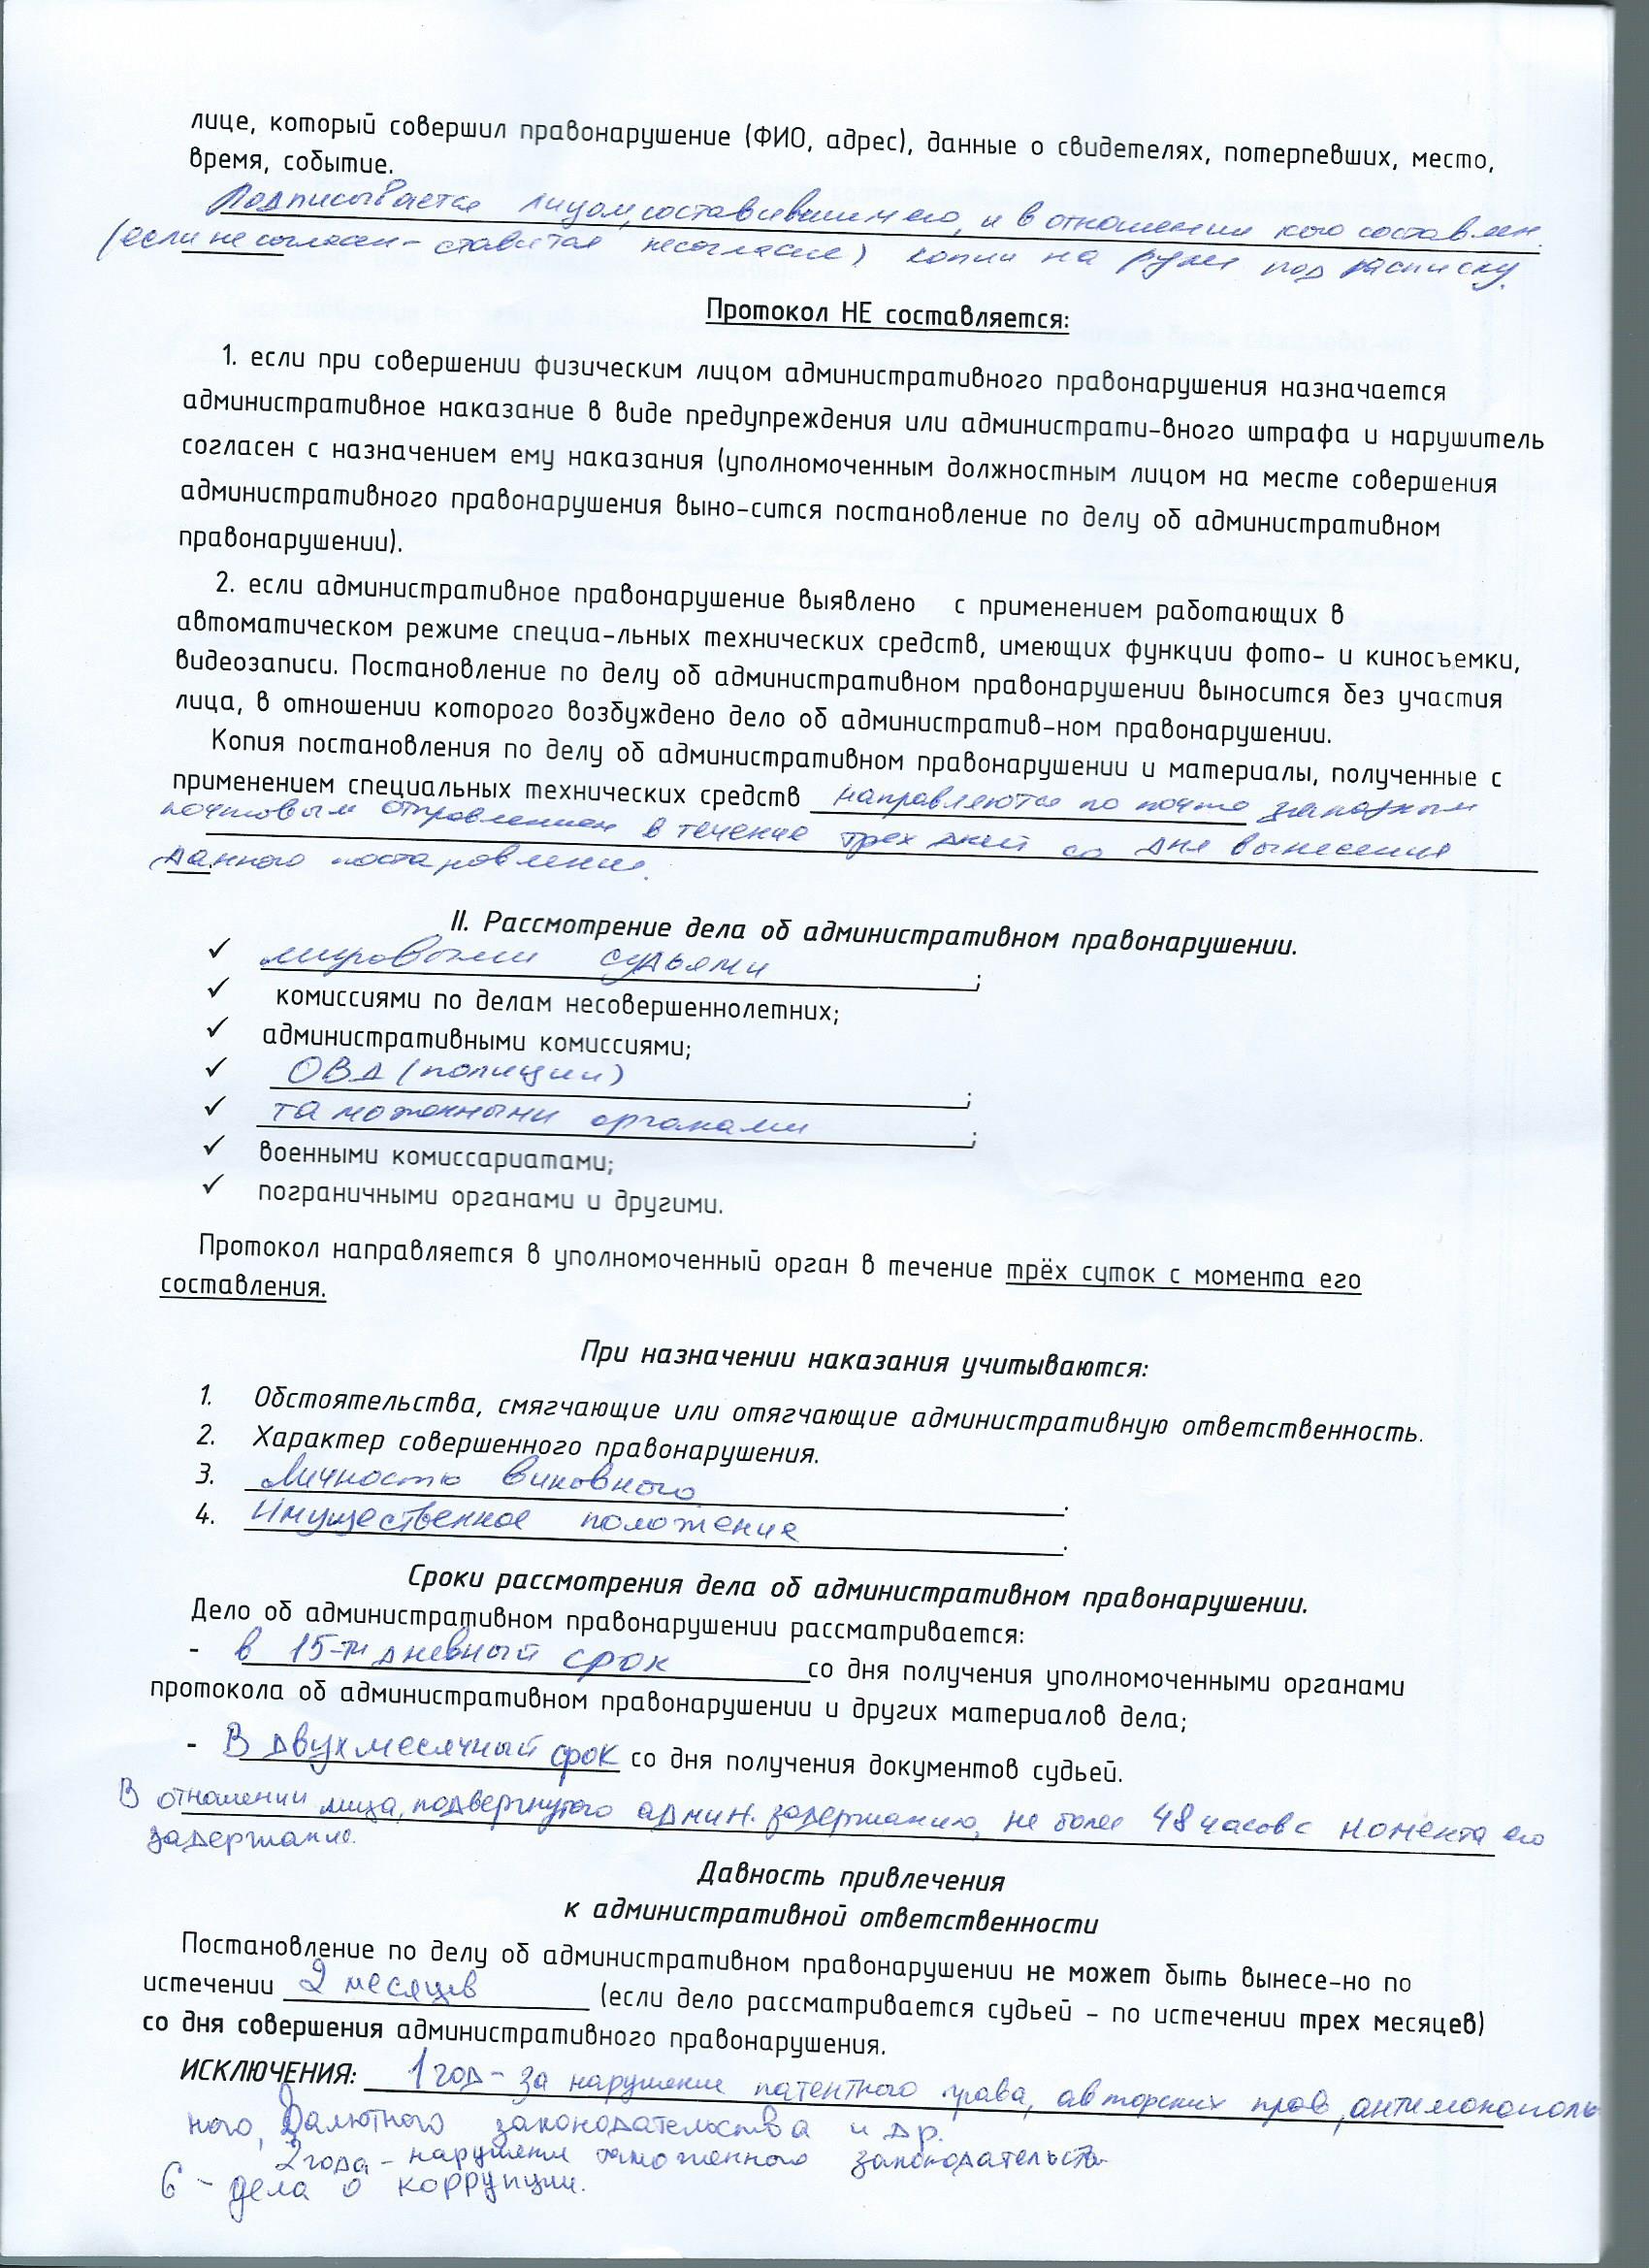 лице, который совершил правонарушение (ФИО, адрес), данные о свидетелях, потерпевших, место,
время, событие.
Подписывается лицом, составившим его, и в отношении кого составлен.
(если не согласен - ставится несогласие) копии на руки под расписку.
Протокол НЕ составляется:
1. если при совершении физическим лицом административного правонарушения назначается
административное наказание в виде предупреждения или администрати-вного штрафа и нарушитель
согласен с назначением ему наказания (уполномоченным должностным лицом на месте совершения
административного правонарушения выно-сится постановление по делу об административном
правонарушении).
2. если административное правонарушение выявлено с применением работающих в
автоматическом режиме специа-льных технических средств, имеющих функции фото- и киносъемки,
видеозаписи. Постановление по делу об административном правонарушении выносится без участия
лица, в отношении которого возбуждено дело об административ-ном правонарушении.
Копия постановления по делу об административном правонарушении и материалы, полученные с
применением специальных технических средств направляются по почте заказным
почтовым отправлением в течение трех дней со дня вынесения
данного постановления.
II. Рассмотрение дела об административном правонарушении.
✓ мировыми судьями ;
✓ комиссиями по делам несовершеннолетних;
✓ административными комиссиями;
✓ ОВД (полиции) ;
✓ таможенными органами ;
✓ военными комиссариатами;
✓ пограничными органами и другими.
Протокол направляется в уполномоченный орган в течение трёх суток с момента его
составления.
При назначении наказания учитываются:
1. Обстоятельства, смягчающие или отягчающие административную ответственность.
2. Характер совершенного правонарушения.
3. Личность виновного .
4. Имущественное положение .
Сроки рассмотрения дела об административном правонарушении.
Дело об административном правонарушении рассматривается:
- в 15-ти дневный срок со дня получения уполномоченными органами
протокола об административном правонарушении и других материалов дела;
- В двухмесячный срок со дня получения документов судьей.
В отношении лица, подвергнутого админ. задержанию, не более 48 часов с момента его
задержание.
Давность привлечения
к административной ответственности
Постановление по делу об административном правонарушении не может быть вынесе-но по
истечении 2 месяцев (если дело рассматривается судьей - по истечении трех месяцев)
со дня совершения административного правонарушения.
ИСКЛЮЧЕНИЯ: 1 год - за нарушение патентного права, авторских прав, антимонополь
ного, Валютного законодательства и др.
2 года - нарушени таможенного законодательств
6 - дела о коррупции.